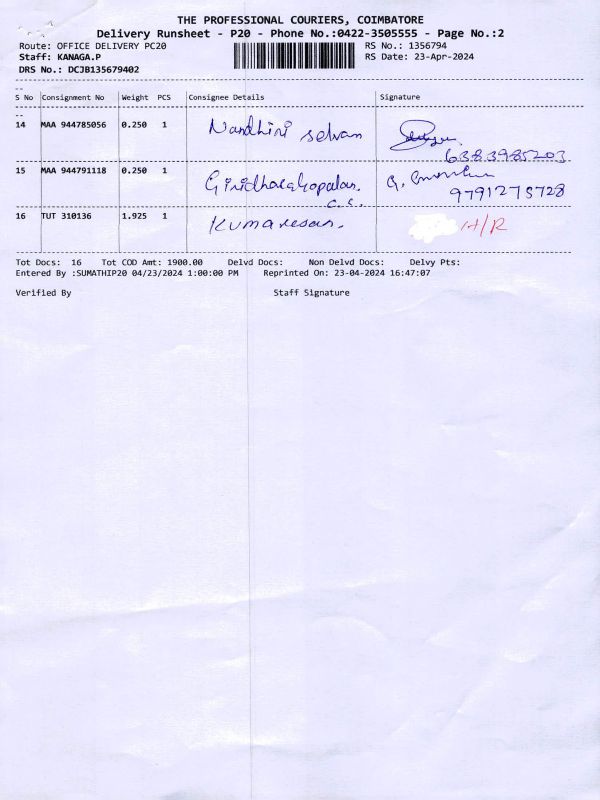 THE PROFESSIONAL COURIERS, COIMBATORE
Delivery Runsheet - P20 - Phone No.:0422-3505555 - Page No.:2
Route: OFFICE DELIVERY PC20 RS No.: 1356794
Staff: KANAGA.P RS Date: 23-Apr-2024
DRS No.: DCJB135679402
S No Consignment No Weight PCS Consignee Details Signature
14 MAA 944785056 0.250 1 Nandhini selvan
6383985203
15 MAA 944791118 0.250 1 Giridharagopalan. G.
C.S. 9791275728
16 TUT 310136 1.925 1 Kumaresan. H/R
Tot Docs: 16 Tot COD Amt: 1900.00 Delvd Docs: Non Delvd Docs: Delvy Pts:
Entered By :SUMATHIP20 04/23/2024 1:00:00 PM Reprinted On: 23-04-2024 16:47:07
Verified By Staff Signature